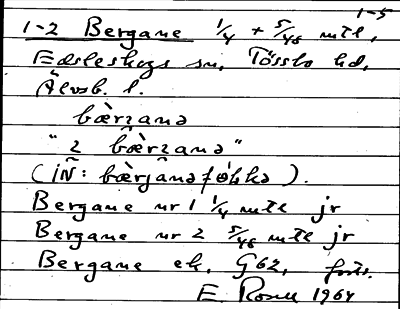 1-5
1-2 Bergane 1/4 + 5/48 mtl,
Edsleskogs sn, Tössbo hd,
Älvsb. l.
bærgana
"2 bærgana"
(IÑ:
Bergane nr 1 1/4 mtl jr
Bergane nr 2 5/48 mtl jr
Bergane ek. G62, forts.
E Rosell 1964